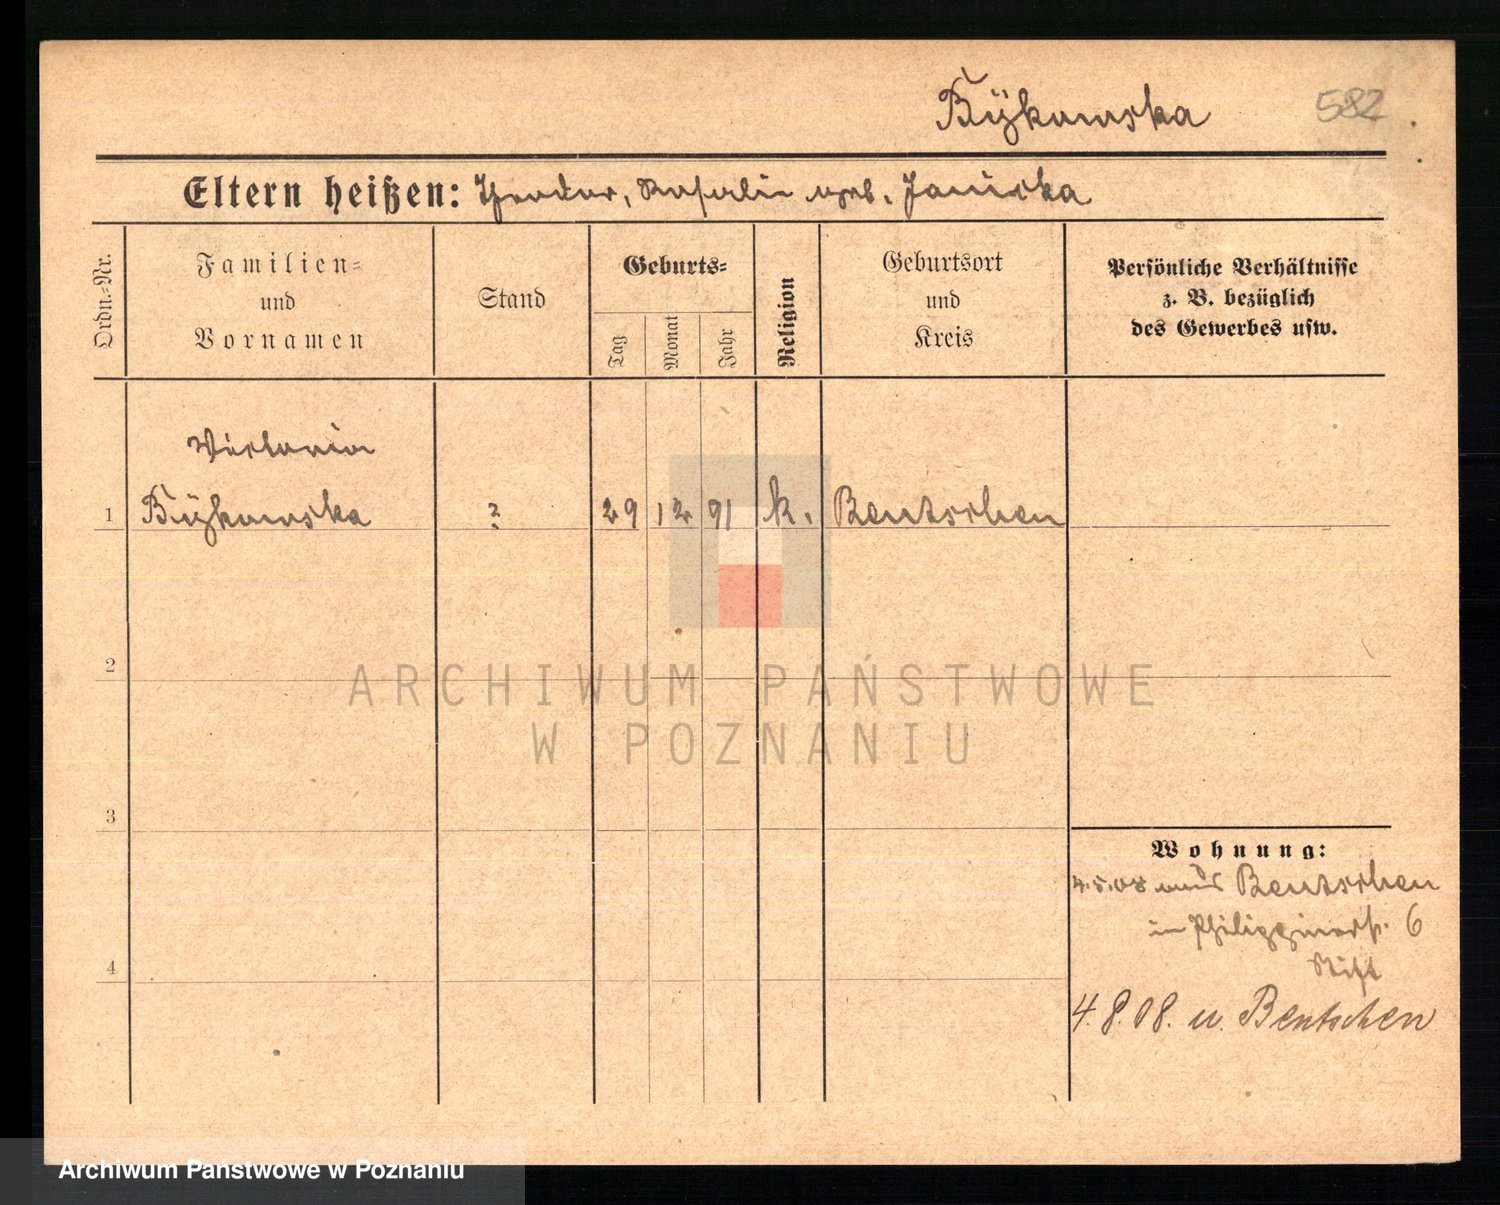 Bÿkowska 582
Eltern heißen: Theodor, Rosalie geb. Janicka
Ordn.-Nr.
Familien-
und
Vornamen
Stand
Geburts-
Tag
Monat
Jahr
Religion
Geburtsort
und
Kreis
Persönliche Verhältnisse
z. B. bezüglich
des Gewerbes usw.
Victoria
1 Bÿkowska ? 29 12 91 k. Bentschen
2
3
4
Wohnung:
4.5.08 aus Bentschen
in 6
Stift
4.8.08. n. Bentschen
ARCHIWUM PAŃSTWOWE
W POZNANIU
Archiwum Państwowe w Poznaniu